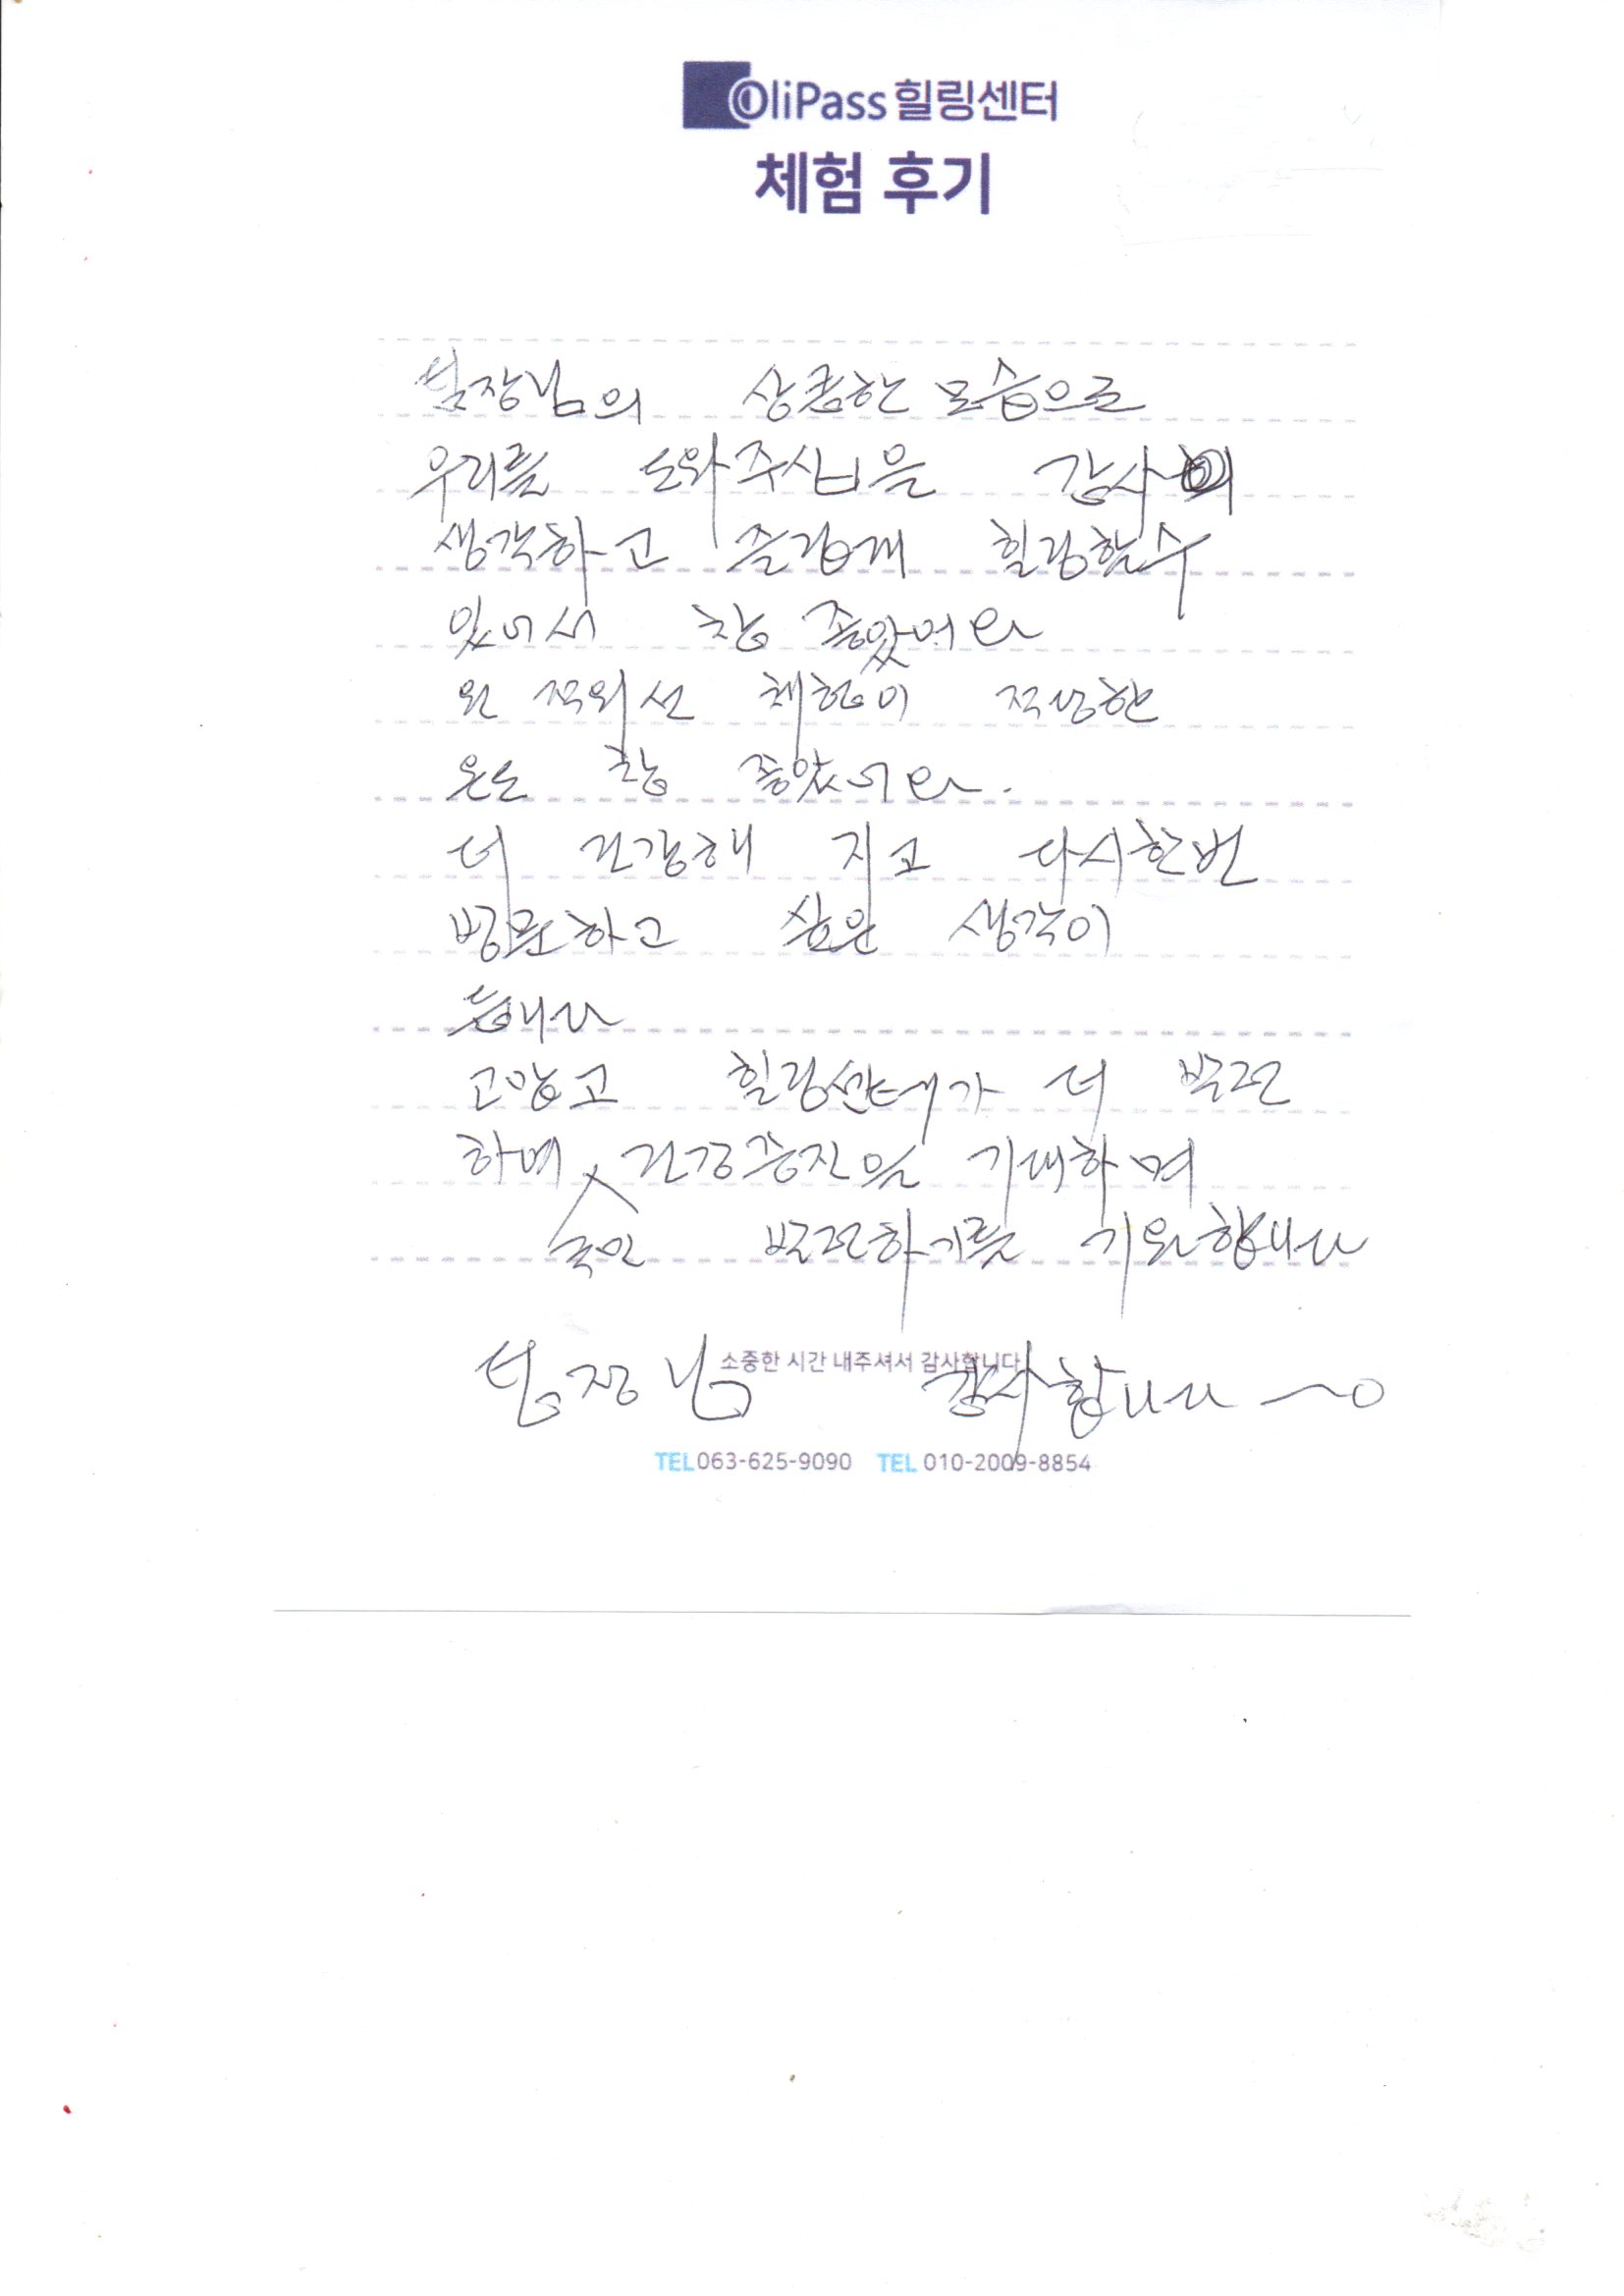 OliPass 힐링센터
체험 후기
팀장님의 상큼한 모습으로
우리를 도와주심을 감사히
생각하고 즐겁게 힐링할수
있어서 참 좋았어요
원 적외선 체험이 적당한
온도 참 좋았어요.
더 건강해 지고 다시한번
방문하고 싶은 생각이
듭니다
고맙고 힐링센터가 더 발전
하며 건강증진을 기대하며
발전하기를 기원합니다
소중한 시간 내주셔서 감사합니다
팀장님 감사합니다
TEL 063-625-9090 TEL 010-2009-8854